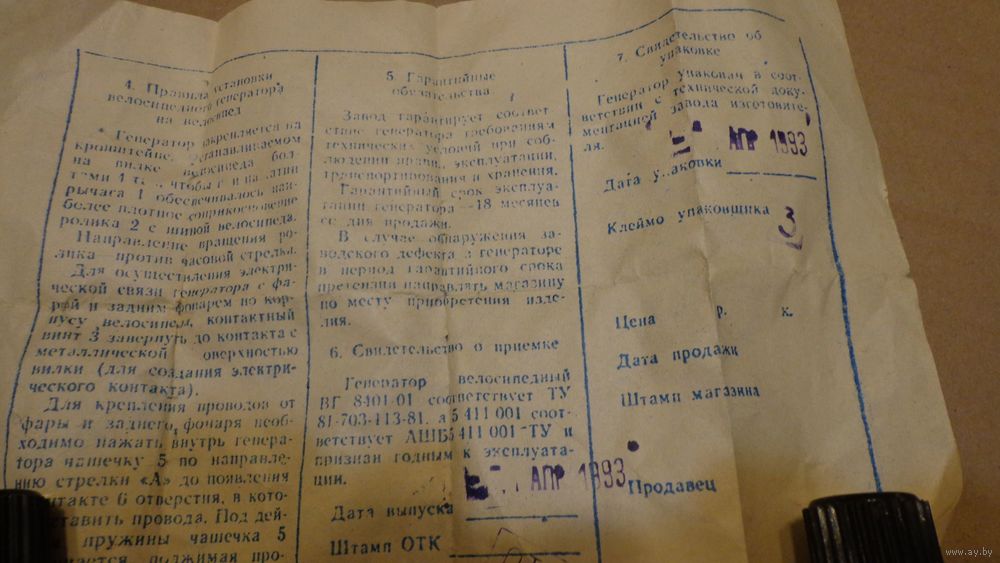 4. Правила установки
велосипедного генератора
на велосипед
Генератор закрепляется на
кронштейне, устанавливаемом
на вилке велосипеда бол-
тами 4 так, чтобы при нажатии
рычага 1 обеспечивалось наи-
более плотное соприкосновение
ролика 2 с шиной велосипеда.
Направление вращения ро-
лика — против часовой стрелки.
Для осуществления электри-
ческой связи генератора с фа-
рой и задним фонарем по кор-
пусу велосипеда, контактный
винт 3 завернуть до контакта с
металлической поверхностью
вилки (для создания электри-
ческого контакта).
Для крепления проводов от
фары и заднего фонаря необ-
ходимо нажать внутрь генера-
тора чашечку 5 по направле-
нию стрелки «А» до появления
контакте 6 отверстия, в кото-
вставить провода. Под дей-
пружины чашечка 5
поджимая про-
5. Гарантийные
обязательства
Завод гарантирует соответ-
ствие генератора требованиям
технических условий при соб-
людении правил эксплуатации,
транспортирования и хранения.
Гарантийный срок эксплуа-
тации генератора — 18 месяцев
со дня продажи.
В случае обнаружения за-
водского дефекта в генераторе
в период гарантийного срока
претензии направлять магазину
по месту приобретения изде-
лия.
6. Свидетельство о приемке
Генератор велосипедный
ВГ 8401-01 соответствует ТУ
81-703-113-81, а 5 411 001 соот-
ветствует АШБ5 411 001 ТУ и
признан годным к эксплуата-
ции.
АПР 1993
Дата выпуска
Штамп ОТК
7. Свидетельство об
упаковке
Генератор упакован в соот-
ветствии с технической доку-
ментацией завода изготовите-
ля.
АПР 1993
Дата упаковки
Клеймо упаковщика 3
Цена р. к.
Дата продажи
Штамп магазина
Продавец
www.ay.by